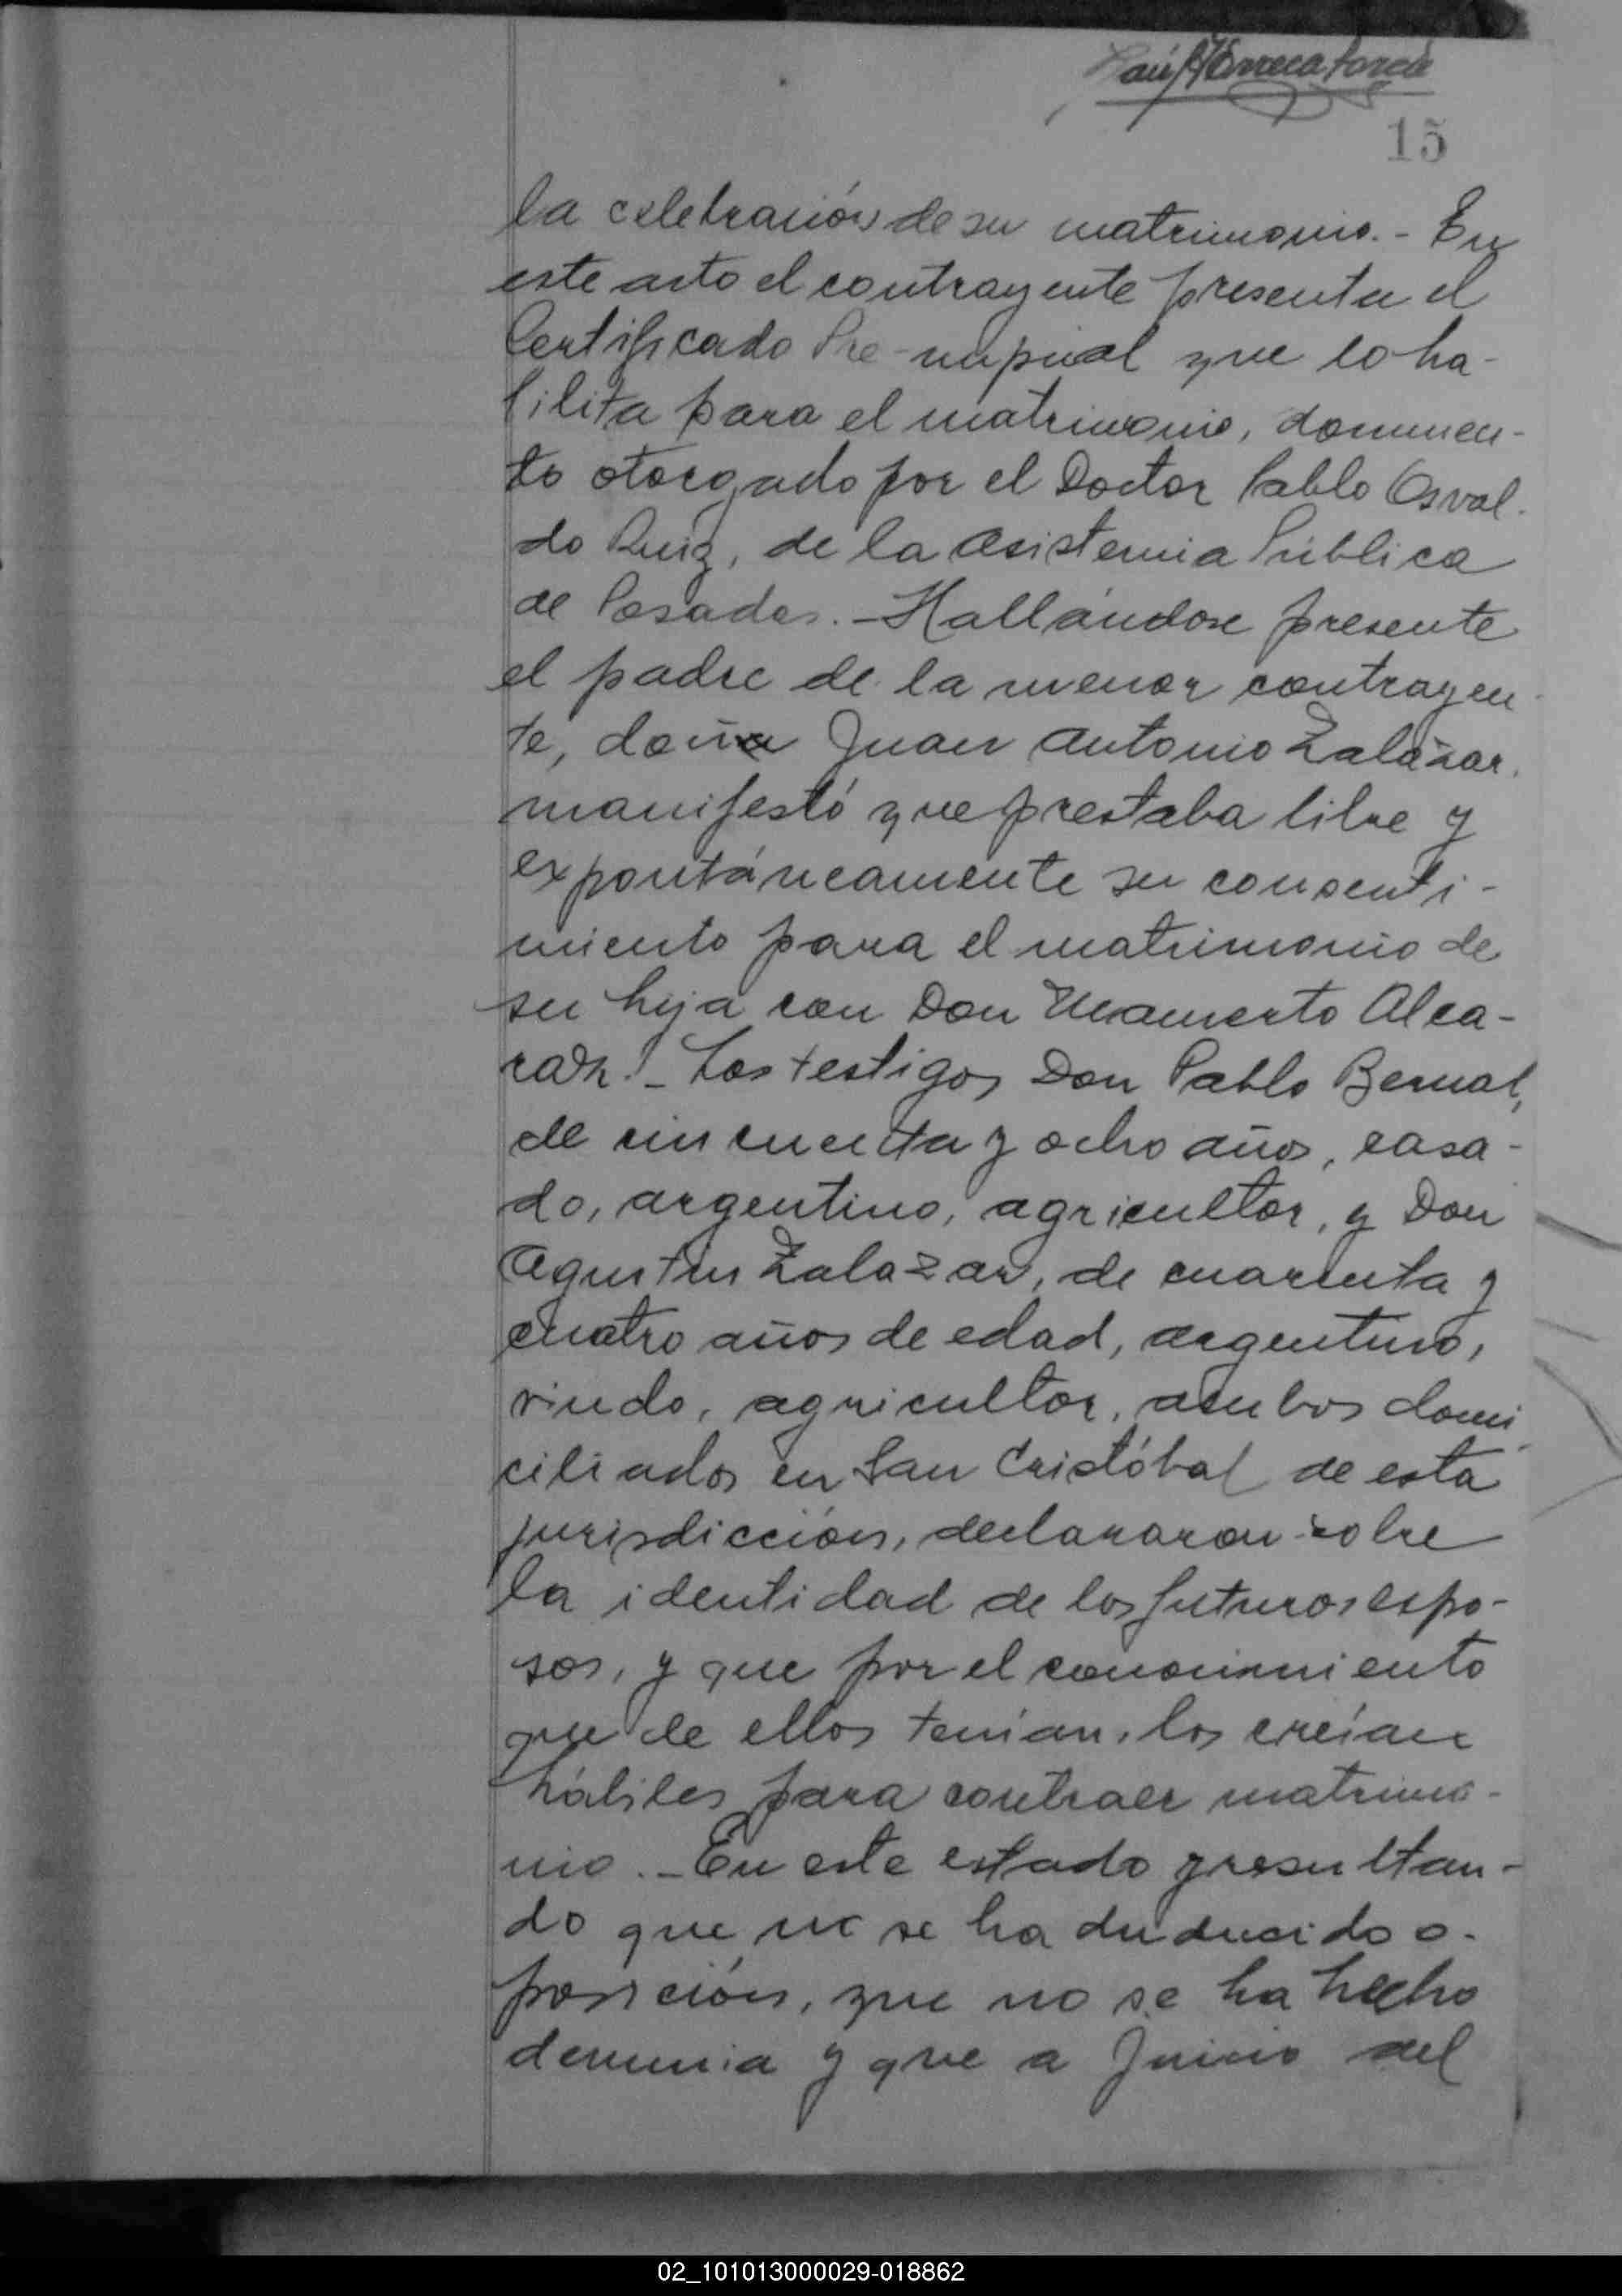 15
la celebración de su matrimonio.- En
este acto el contrayente presenta el
Certificado Pre-nupcial que lo ha-
bilita para el matrimonio, documen-
to otorgado por el Doctor Pablo Osval-
do Ruiz, de la Asistencia Pública
de Posadas.- Hallándose presente
el padre de la menor contrayen-
te, doña Juan Antonio Zalazar,
manifestó que prestaba libre y
expontáneamente su consenti-
miento para el matrimonio de
su hija con Don Mamerto Alca-
raz.- Los testigos Don Pablo Bernal,
de cincuenta y ocho años, casa-
do, argentino, agricultor, y Don
Agustin Zalazar, de cuarenta y
cuatro años de edad, argentino,
viudo, agricultor, ambos domi-
ciliados en San Cristóbal de esta
jurisdicción, declararon sobre
la identidad de los futuros espo-
sos, y que por el conocimiento
que de ellos tenían, los creían
hábiles para contraer matrimo-
nio.- En este estado y resultan-
do que no se ha duducido o-
posición, que no se ha hecho
denuncia y que a Juicio del
02_101013000029-018862